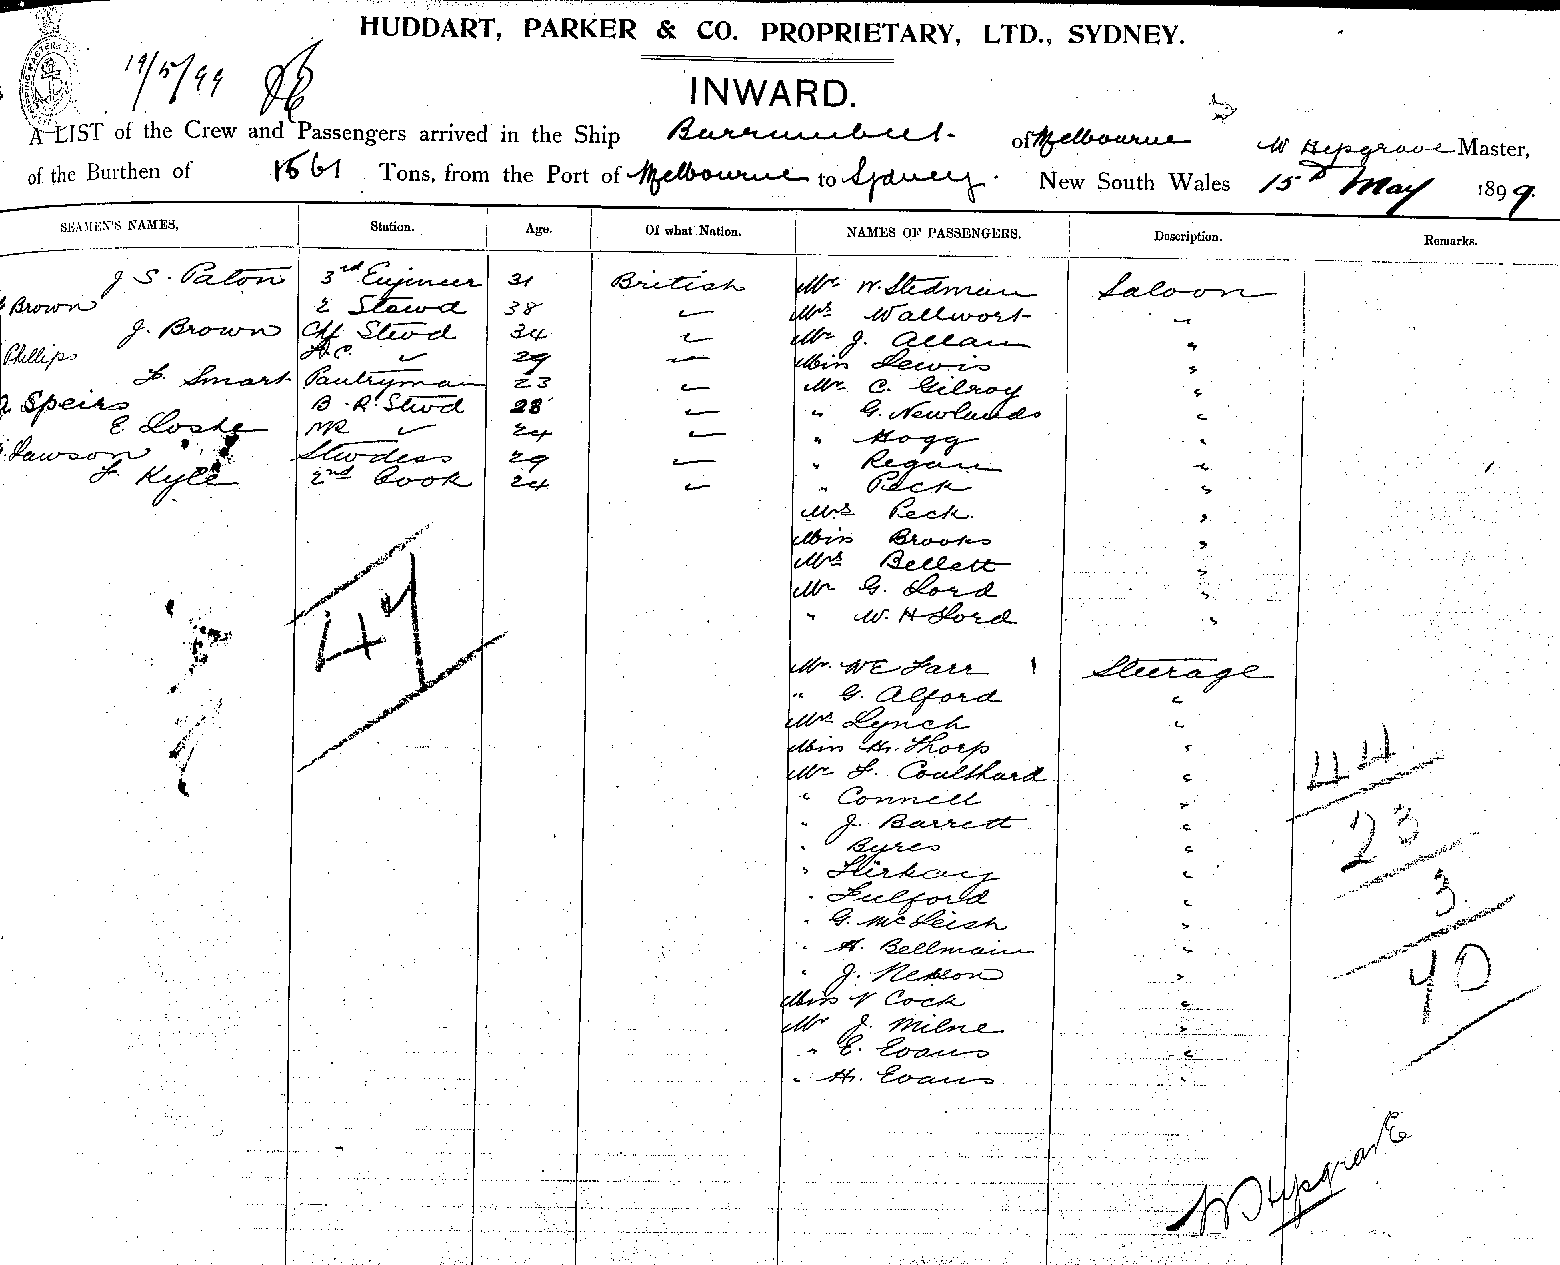 HUDDART, PARKER & CO. PROPRIETARY, LTD., SYDNEY.
19/5/99
INWARD.
A LIST of the Crew and Passengers arrived in the Ship Burrumbeet of Melbourne W Hepgrave Master,
of the Burthen of Tons, from the Port of Melbourne to Sydney. New South Wales 15th May 1899.
SEAMEN'S NAMES, Station. Age. Of what Nation. NAMES OF PASSENGERS. Description. Remarks.
J S. Paton 3rd Engineer 31 British Mr W. Stedman Saloon
Brown 2 Stewd 38 " Mrs Wallwort "
J. Brown Chf Stewd 34 " Mr J. Allan "
Phillips " 29 " Miss Lewis "
F. Smart Pantryman 23 " Mr C. Gilroy "
Speirs B. R. Stewd 28 " " G. Newlands "
E Loske " 24 " " Hogg "
Lawson Stewdess 29 " " Regan "
F Kyle 2nd Cook 24 " " Peck "
Mrs Peck. "
Miss Brooks "
Mrs Bellett "
Mr G. Lord "
" W. H Lord "
47
Mr. WE Farr Steerage
" G. Alford "
Mrs Lynch "
Miss H. Thorp "
Mr F. Coulthard "
44
" Connell "
" J. Barrett "
23
" Byres "
" "
3
" Fulford "
" G. McLeish "
" H. Bellmain "
70
" J. Nexon "
Miss V Cock "
Mr J. Milne "
" E. Evans "
" H. Evans "
W Hepgrave